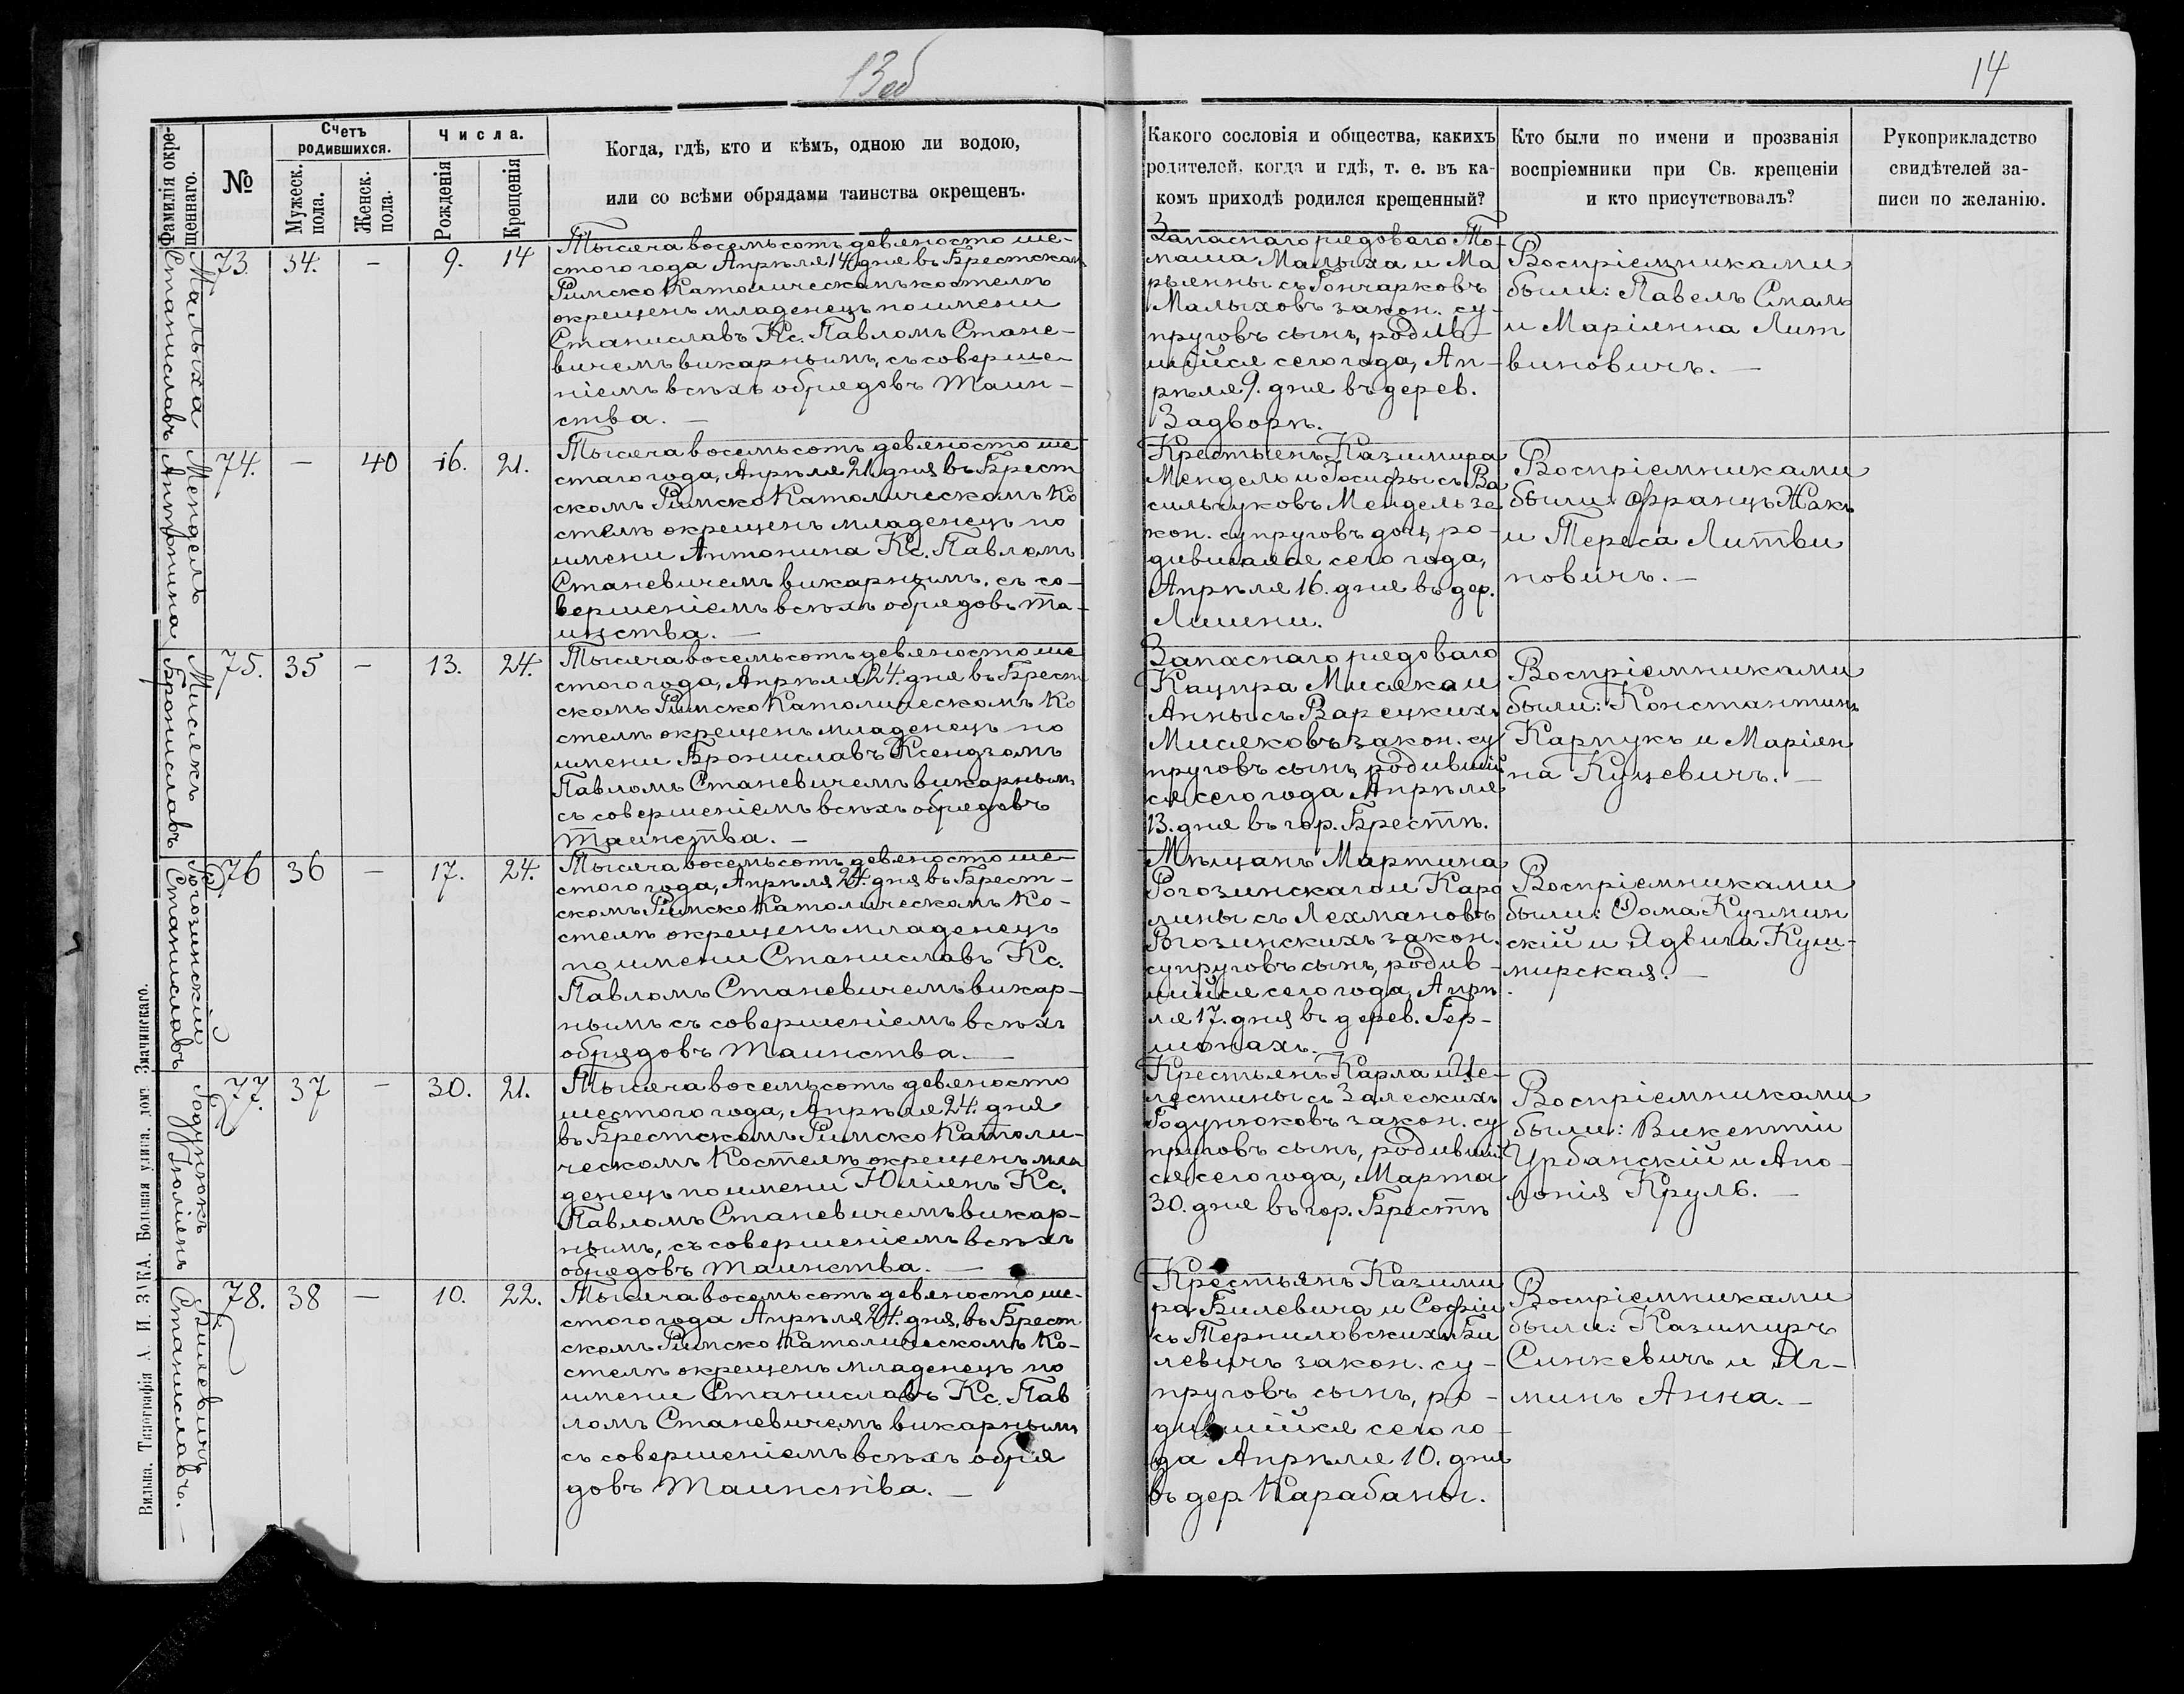 13об
14
Фамилія окрещеннаго.
№
Счетъ родившихся.
Мужеск. пола.
Женск. пола.
Числа.
Рожденія
Крещенія
Когда, гдѣ, кто и кѣмъ, одною ли водою,
или со всѣми обрядами таинства окрещенъ.
Какого сословія и общества, какихъ
родителей, когда и гдѣ, т. е. въ ка-
комъ приходѣ родился крещенный?
Кто были по имени и прозванія
воспріемники при Св. крещеніи
и кто присутствовалъ?
Рукоприкладство
свидѣтелей за-
писи по желанію.
Малыха
Станиславъ
73. 34. - 9. 14
Тысяча восемьсотъ девяносто ше-
стого года Апрѣля 14 дня въ Брестском
Римско Католическомъ костелѣ
окрещенъ младенецъ по имени
Станиславъ Кс. Павломъ Стане-
вичемъ викарнымъ, съ соверше-
ніемъ всѣхъ обрядовъ Таин-
ства. —
Запаснаго рядоваго То-
маша Малыха и Ма
рьянны съ Гончарковъ
Малыховъ закон. су-
пруговъ сынъ, родив-
шійся сего года, Ап-
рѣля 9. дня въ дерев.
Задворѣ.
Воспріемниками
были: Павелъ Смаль
и Маріянна Лит
виновичъ. —
Мендель
Антонина
74. — 40 16. 21.
Тысяча восемьсотъ девяносто ше
стаго года, Апрѣля 21 дня въ Брест
скомъ Римско Католическомъ Ко
стелѣ окрещенъ младенец по
имени Антонина Кс. Павломъ
Станевичемъ викарнымъ, съ со-
вершеніемъ всѣхъ обрядовъ та-
инства. —
Крестьянъ Казимира
Мендель и Іосифы съ Ва
сильчуковъ Мендель за
кон. супруговъ дочь, ро-
дившаяся сего года,
Апрѣля 16. дня въ дер.
Воспріемниками
были: Францъ Жакъ
и Тереса Литви
новичъ. —
Мисякъ
Брониславъ
75. 35 - 13. 24.
Тысяча восемьсотъ девяносто ше
стого года, Апрѣля 24. дня въ Брест
скомъ Римско Католическомъ Ко
стелѣ окрещенъ младенец по
имени Брониславъ Ксендзомъ
Павломъ Станевичемъ викарным
съ совершеніемъ всѣхъ обрядовъ
таинства. —
Запаснаго рядоваго
Кацпра Мисяка и
Анны съ Варецкихъ
Мисяковъ закон. су
пруговъ сынъ, родившій
ся сего года Апрѣля
13. дня въ гор. Брестѣ.
Воспріемниками
были: Константинъ
Карпукъ и Маріян
на Куцевичъ. —
Рогозинскій
Станиславъ
76 36 - 17. 24.
Тысяча восемьсотъ девяносто ше-
стого года, Апрѣля 24. дня въ Брест-
скомъ Римско Католическомъ Ко-
стелѣ окрещенъ младенецъ
по имени Станиславъ Кс.
Павломъ Станевичемъ викар-
нымъ съ совершеніемъ всѣхъ
обрядовъ Таинства. —
Мѣщанъ Мартина
Рогозинскаго и Каро
лины съ Лехмановъ
Рогозинскихъ закон.
супруговъ сынъ, родив-
шійся сего года, Апрѣ
ля 17. дня въ дерев. Гер-
шонахъ.
Воспріемниками
были: Ѳома Кузмин
скій и Ядвига Куш-
мирская. —
Годунюкъ
Юліянъ
77. 37 - 30. 21.
Тысяча восемьсотъ девяносто
шестого года, Апрѣля 24. дня
въ Брестскомъ Римско Католи-
ческомъ Костелѣ окрещенъ мла
денецъ по имени Юліянъ Кс.
Павломъ Станевичемъ викар-
нымъ, съ совершеніемъ всѣхъ
обрядовъ таинства. —
Крестьянъ Карла и Це-
лестины съ Залескихъ
Годунюковъ закон. су
пруговъ сынъ, родившій
ся сего года, Марта
30. дня въ гор. Брестѣ
Воспріемниками
были: Викентій
Урбанскій и Апо-
лонія Круль. —
Билевичъ
Станиславъ. —
78. 38 — 10. 22.
Тысяча восемьсотъ девяносто ше-
стого года Апрѣля 24. дня, въ Брест
скомъ Римско Католическомъ Ко-
стелѣ окрещенъ младенецъ по
имени Станиславъ Кс. Пав
ломъ Станевичемъ викарным
съ совершеніемъ всѣхъ обря
довъ Таинства. —
Крестьянъ Казими
ра Билевича и Софіи
съ Терпиловскихъ Би
левичъ закон. су-
пруговъ сынъ, ро-
дившійся сего го-
да Апрѣля 10. дня
въ дер. Карабаны.
Воспріемниками
были: Казимиръ
Синкевичъ и Яг-
минъ Анна. —
Вильна. Типографія А. И. ЗАКА. Большая улица, домъ Значинскаго.